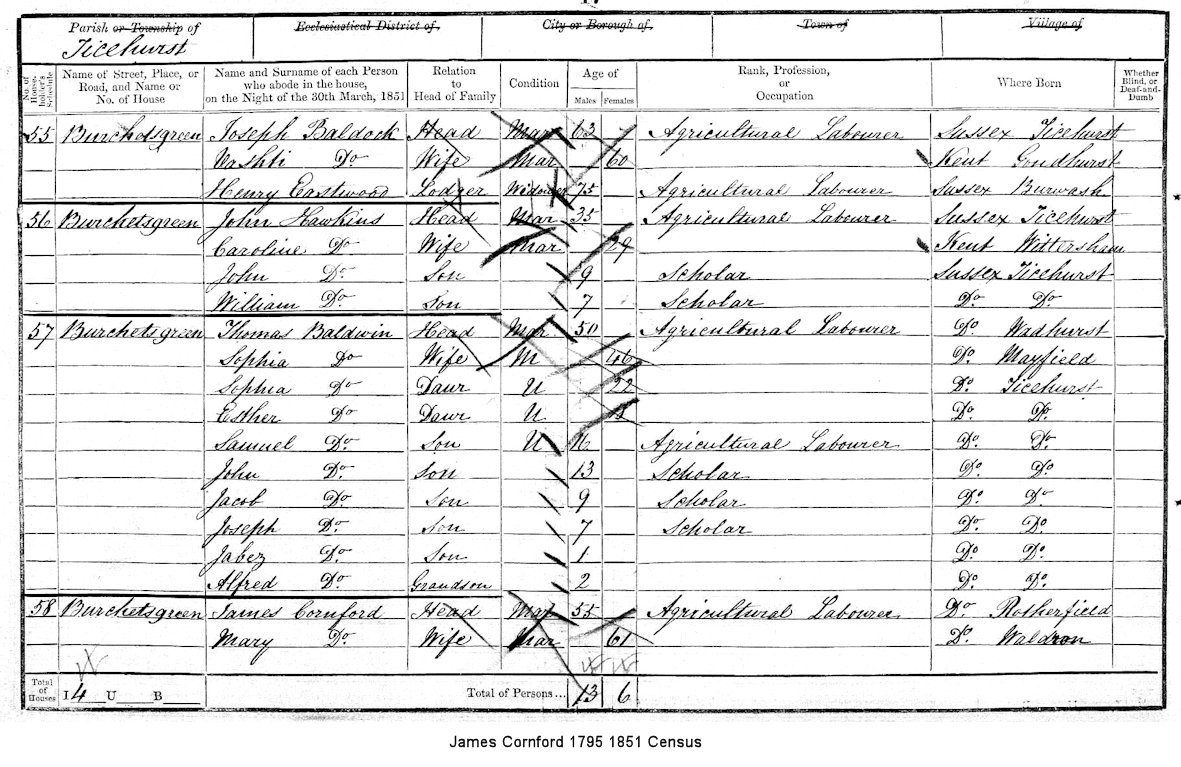 Parish or Township of Ecclesiastical District of, City or Borough of, Town of Village of
Ticehurst
No. of House-holder's Schedule Name of Street, Place, or Road, and Name or No. of House Name and Surname of each Person who abode in the house, on the Night of the 30th March, 1851 Relation to Head of Family Condition Age of Males Females Rank, Profession, or Occupation Where Born Whether Blind, or Deaf-and-Dumb
55 Burchetsgreen Joseph Baldock Head Mar 63 Agricultural Labourer Sussex Ticehurst
Vashti Do Wife Mar 60 Kent Goudhurst
Henry Eastwood Lodger Widower 75 Agricultural Labourer Sussex Burwash
56 Burchetsgreen John Hawkins Head Mar 35 Agricultural Labourer Sussex Ticehurst
Caroline Do Wife Mar 29 Kent Wittersham
John Do Son 9 Scholar Sussex Ticehurst
William Do Son 7 Scholar Do Do
57 Burchetsgreen Thomas Baldwin Head Mar 50 Agricultural Labourer Do Wadhurst
Sophia Do Wife M 46 Do Mayfield
Sophia Do Daur U 22 Do Ticehurst
Esther Do Daur U Do Do
Samuel Do Son U 16 Agricultural Labourer Do Do
John Do Son 13 Scholar Do Do
Jacob Do Son 9 Scholar Do Do
Joseph Do Son 7 Scholar Do Do
Jabez Do Son 1 Do Do
Alfred Do Grandson 2 Do Do
58 Burchetsgreen James Cornford Head Mar 55 Agricultural Labourer Do Rotherfield
Mary Do Wife Mar 61 Do Waldron
Total of Houses I 4 U B Total of Persons... 13 6
James Cornford 1795 1851 Census